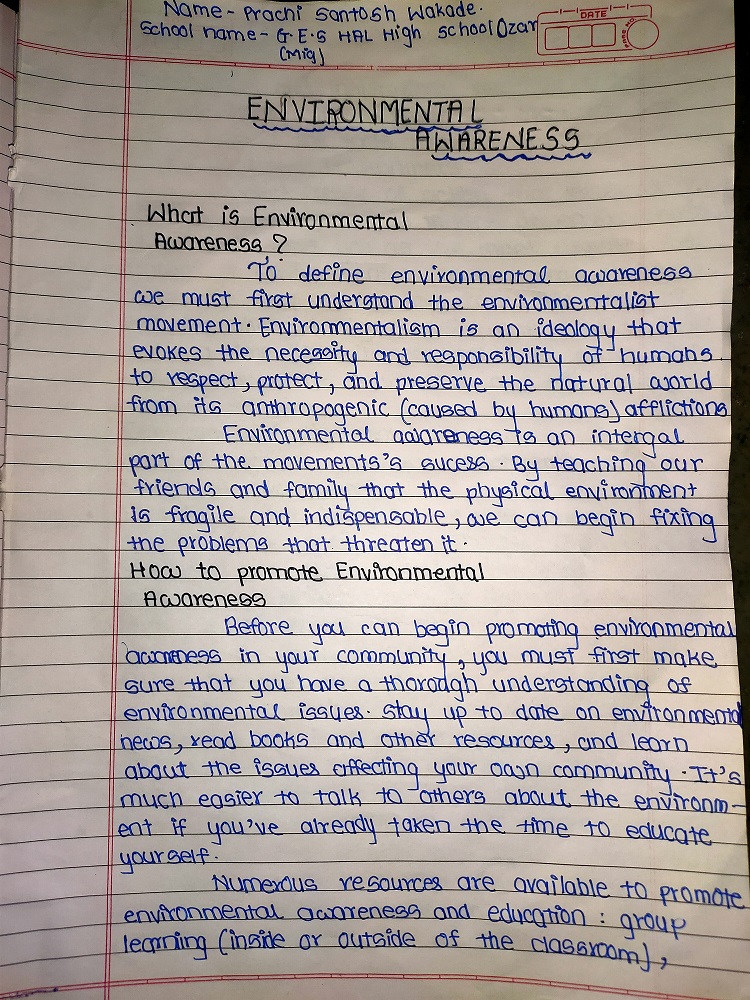 Name - Prachi Santosh Wakade.
School name - G.E.S HAL High school Ozar
(Mig)
DATE
ENVIRONMENTAL
AWARENESS
What is Environmental
Awareness ?
To define environmental awareness
we must first understand the environmentalist
movement. Environmentalism is an ideology that
evokes the necessity and responsibility of humans
to respect, protect, and preserve the natural world
from its anthropogenic (caused by humans) afflictions
Environmental awareness is an intergal
part of the movements's sucess. By teaching our
friends and family that the physical environment
is fragile and indispensable, we can begin fixing
the problems that threaten it.
How to promote Environmental
Awareness
Before you can begin promoting environmental
awareness in your community, you must first make
sure that you have a thorough understanding of
environmental issues. Stay up to date on environmental
news, read books and other resources, and learn
about the issues affecting your own community. It's
much easier to talk to others about the environm-
ent if you've already taken the time to educate
yourself.
Numerous resources are available to promote
environmental awareness and education : group
learning (inside or outside of the classroom),